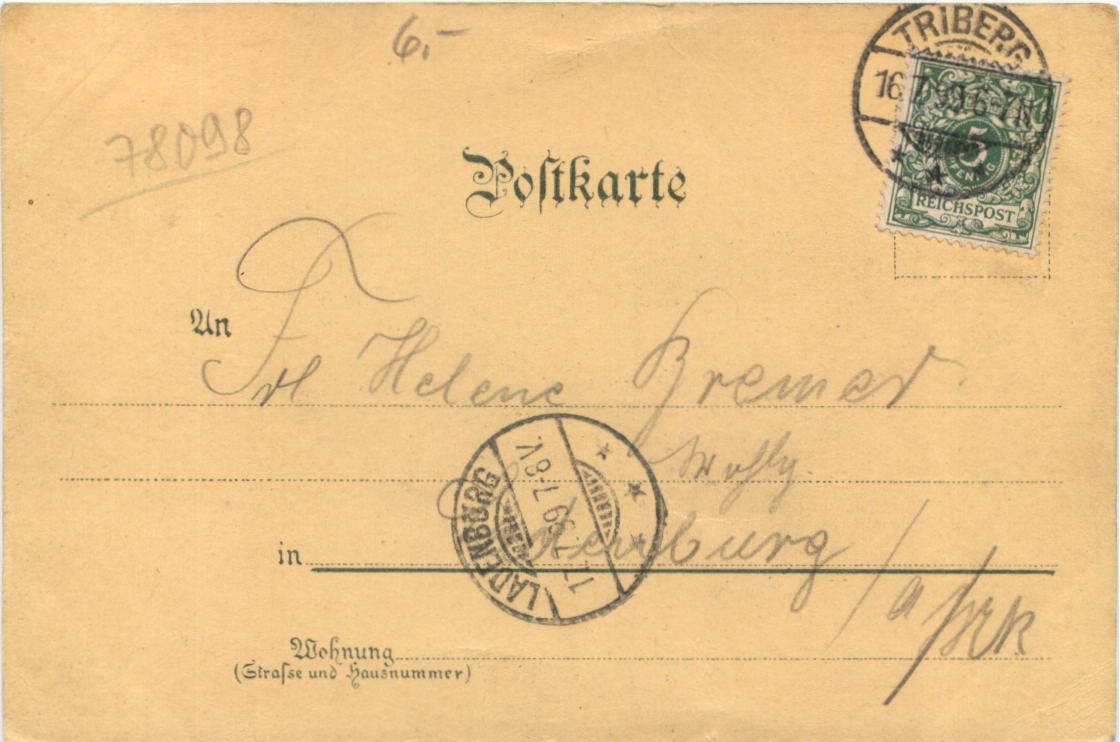 6.-
TRIBERG
16 7 99 6-7N
78098
5
PFENNIG
REICHSPOST
Postkarte
An
Frl Helene Bremer
in Ladenburg
LADENBURG
17 7 99 7-8V.
Wohnung
(Strasse und Hausnummer)